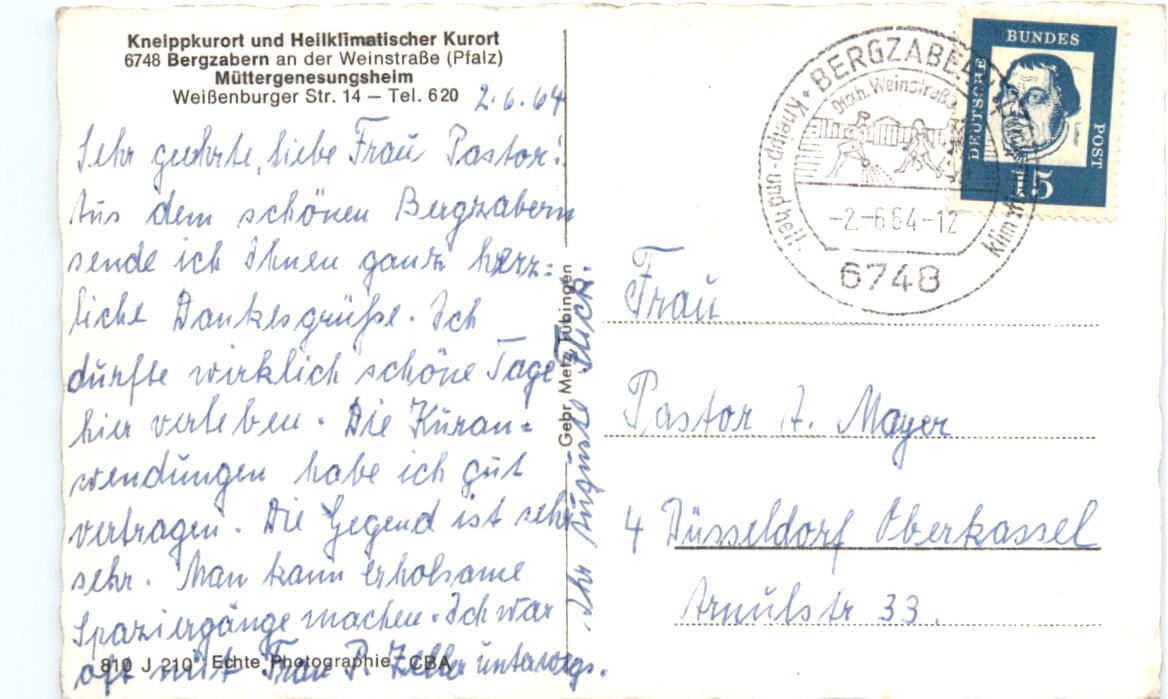 Kneippkurort und Heilklimatischer Kurort
6748 Bergzabern an der Weinstraße (Pfalz)
Müttergenesungsheim
Weißenburger Str. 14 — Tel. 620
2.6.64
Sehr geehrte, liebe Frau Pastor!
Aus dem schönen Bergzabern
sende ich Ihnen ganz herz=
liche Dankesgrüße. Ich
durfte wirklich schöne Tage
hier verleben. Die Kuran=
wendungen habe ich gut
vertragen. Die Gegend ist sehr
sehr. Man kann erholsame
Spaziergänge machen. Ich war
oft mit Frau P. Zeller unterwegs.
Ihr Auguste Flick.
810 J 210 Echte Photographie CBA
Gebr. Metz, Tübingen
BERGZABERN
Dtsch. Weinstraße
Kneipp- und Heilklim
-2.-6.64-12
6748
DEUTSCHE BUNDES POST
Luther
15
Frau
Pastor A. Mayer
4 Düsseldorf Oberkassel
Arnulstr 33.